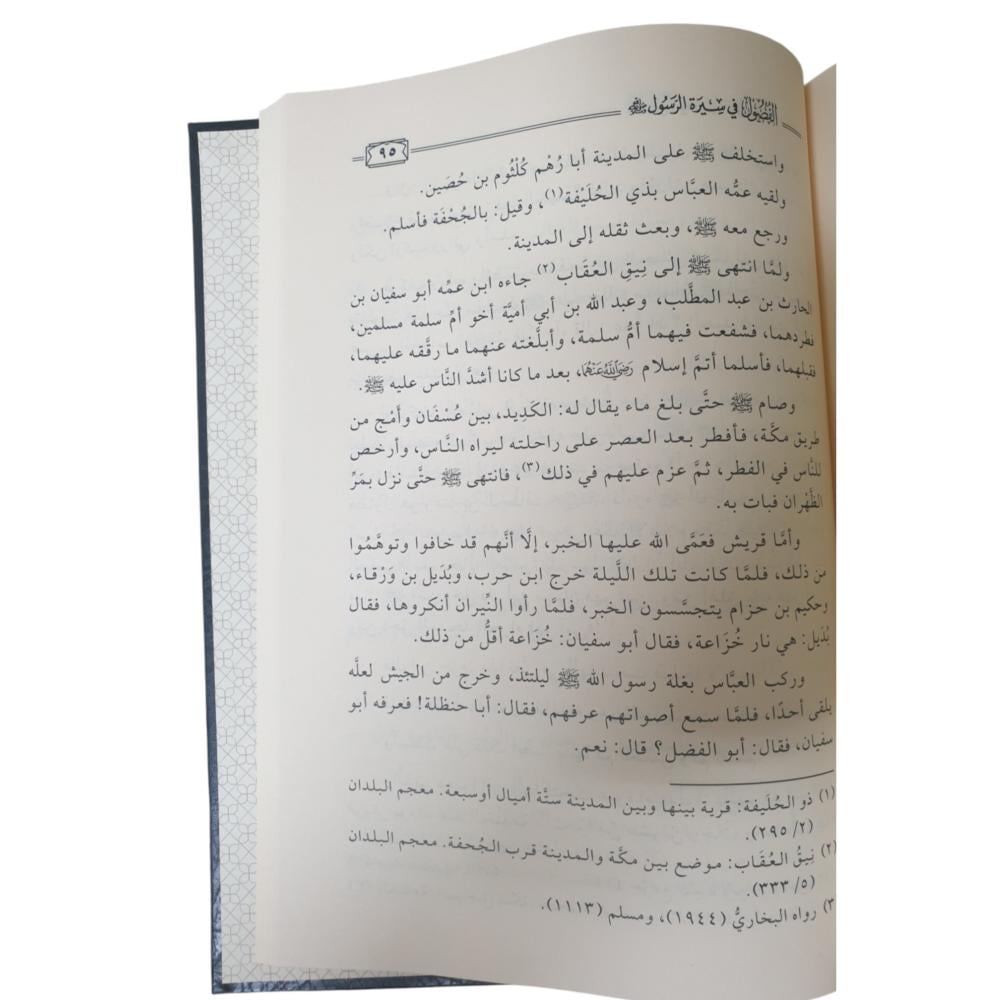 الفصول في سيرة الرسول ﷺ
٩٥
واستخلف ﷺ على المدينة أبا رُهْم كُلْثُوم بن حُصَين.
ولقيه عمُّه العبَّاس بذي الحُلَيْفة(١)، وقيل: بالجُحْفَة فأسلم.
ورجع معه ﷺ، وبعث ثقله إلى المدينة.
ولمَّا انتهى ﷺ إلى نِيقِ العُقَاب(٢) جاءه ابن عمِّه أبو سفيان بن
الحارث بن عبد المطَّلب، وعبد الله بن أبي أميَّة أخو أمِّ سلمة مسلمين،
فطردهما، فشفعت فيهما أمُّ سلمة، وأبلغته عنهما ما رقَّقه عليهما،
فقبلهما، فأسلما أتمَّ إسلام رَضِيَ اللَّهُ عَنْهُمَا، بعد ما كانا أشدَّ النَّاس عليه ﷺ.
وصام ﷺ حتَّى بلغ ماء يقال له: الكَدِيد، بين عُسْفَان وأَمْج من
طريق مكَّة، فأفطر بعد العصر على راحلته ليراه النَّاس، وأرخص
للنَّاس في الفطر، ثمَّ عزم عليهم في ذلك(٣)، فانتهى ﷺ حتَّى نزل بمَرِّ
الظَّهْران فبات به.
وأمَّا قريش فعَمَّى الله عليها الخبر، إلَّا أنَّهم قد خافوا وتوهَّمُوا
من ذلك، فلمَّا كانت تلك اللَّيلة خرج ابن حرب، وبُدَيل بن وَرْقاء،
وحكيم بن حزام يتجسَّسون الخبر، فلمَّا رأوا النِّيران أنكروها، فقال
بُدَيل: هي نار خُزَاعة، فقال أبو سفيان: خُزَاعة أقلُّ من ذلك.
وركب العبَّاس بغلة رسول الله ﷺ ليلتئذ، وخرج من الجيش لعلَّه
يلقى أحدًا، فلمَّا سمع أصواتهم عرفهم، فقال: أبا حنظلة! فعرفه أبو
سفيان، فقال: أبو الفضل؟ قال: نعم.
(١) ذو الحُلَيفة: قرية بينها وبين المدينة ستَّة أميال أوسبعة. معجم البلدان
(٢/ ٢٩٥).
(٢) نِيقُ العُقَاب: موضع بين مكَّة والمدينة قرب الجُحفة. معجم البلدان
(٥/ ٣٣٣).
٣) رواه البخاريُّ (١٩٤٤)، ومسلم (١١١٣).